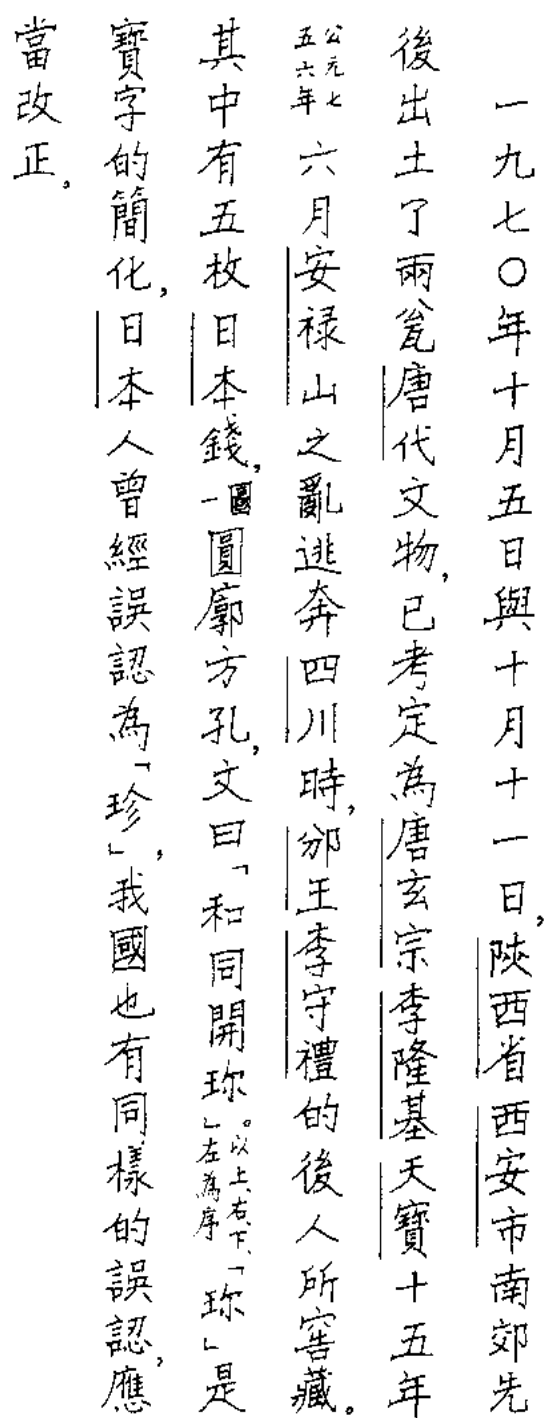 一九七〇年十月五日與十月十一日，陝西省西安市南郊先
後出土了兩瓮唐代文物，已考定為唐玄宗李隆基天寶十五年
公元七
五六年
六月安禄山之亂逃奔四川時，邠王李守禮的後人所窖藏。
其中有五枚日本錢，一圓廓方孔，文曰「和同開珎」
。以上、右、下、
左為序
「珎」是
寶字的簡化，日本人曾經誤認為「珍」，我國也有同樣的誤認，應
當改正。